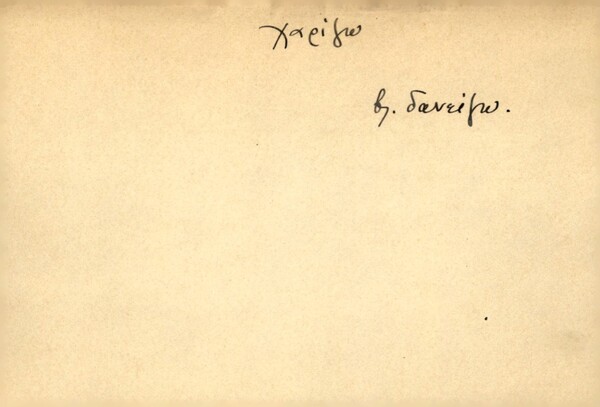 χαρίζω
βλ. δανείζω.